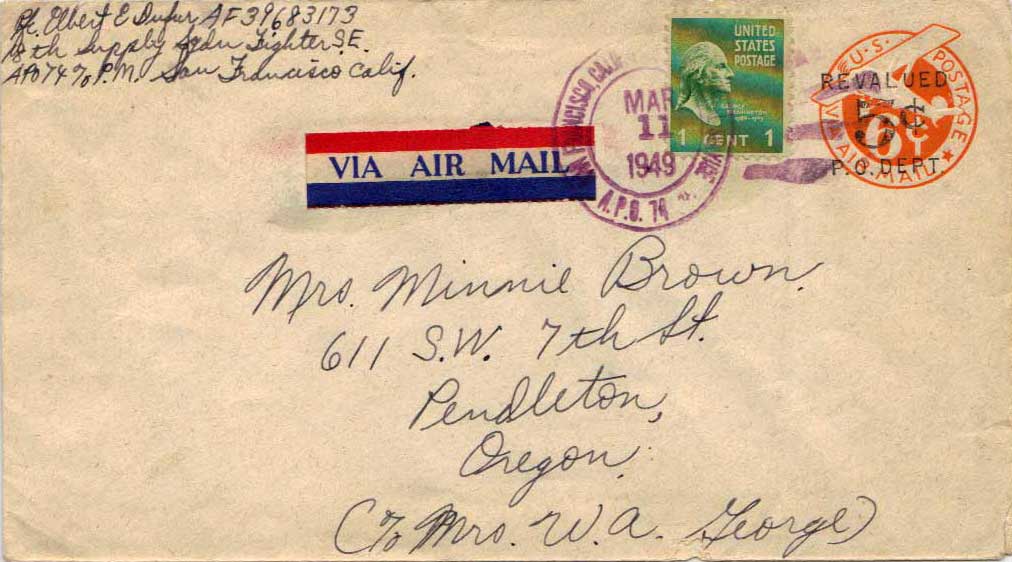 Pfc. Elbert E Dufur AF39683173
18th Supply Sqdn Fighter S.E.
APO 74 c/o P.M. San Francisco Calif.
UNITED
STATES
POSTAGE
GEORGE
WASHINGTON
1789-1797
1 CENT 1
FRANCISCO, CALIF.
MAR
11
1949
A.P.O. 74
U.S. POSTAGE
REVALUED
5¢
6¢
P.O. DEPT.
AIR MAIL
VIA AIR MAIL
Mrs. Minnie Brown
611 S.W. 7th St.
Pendleton,
Oregon.
(c/o Mrs. W.A. George)